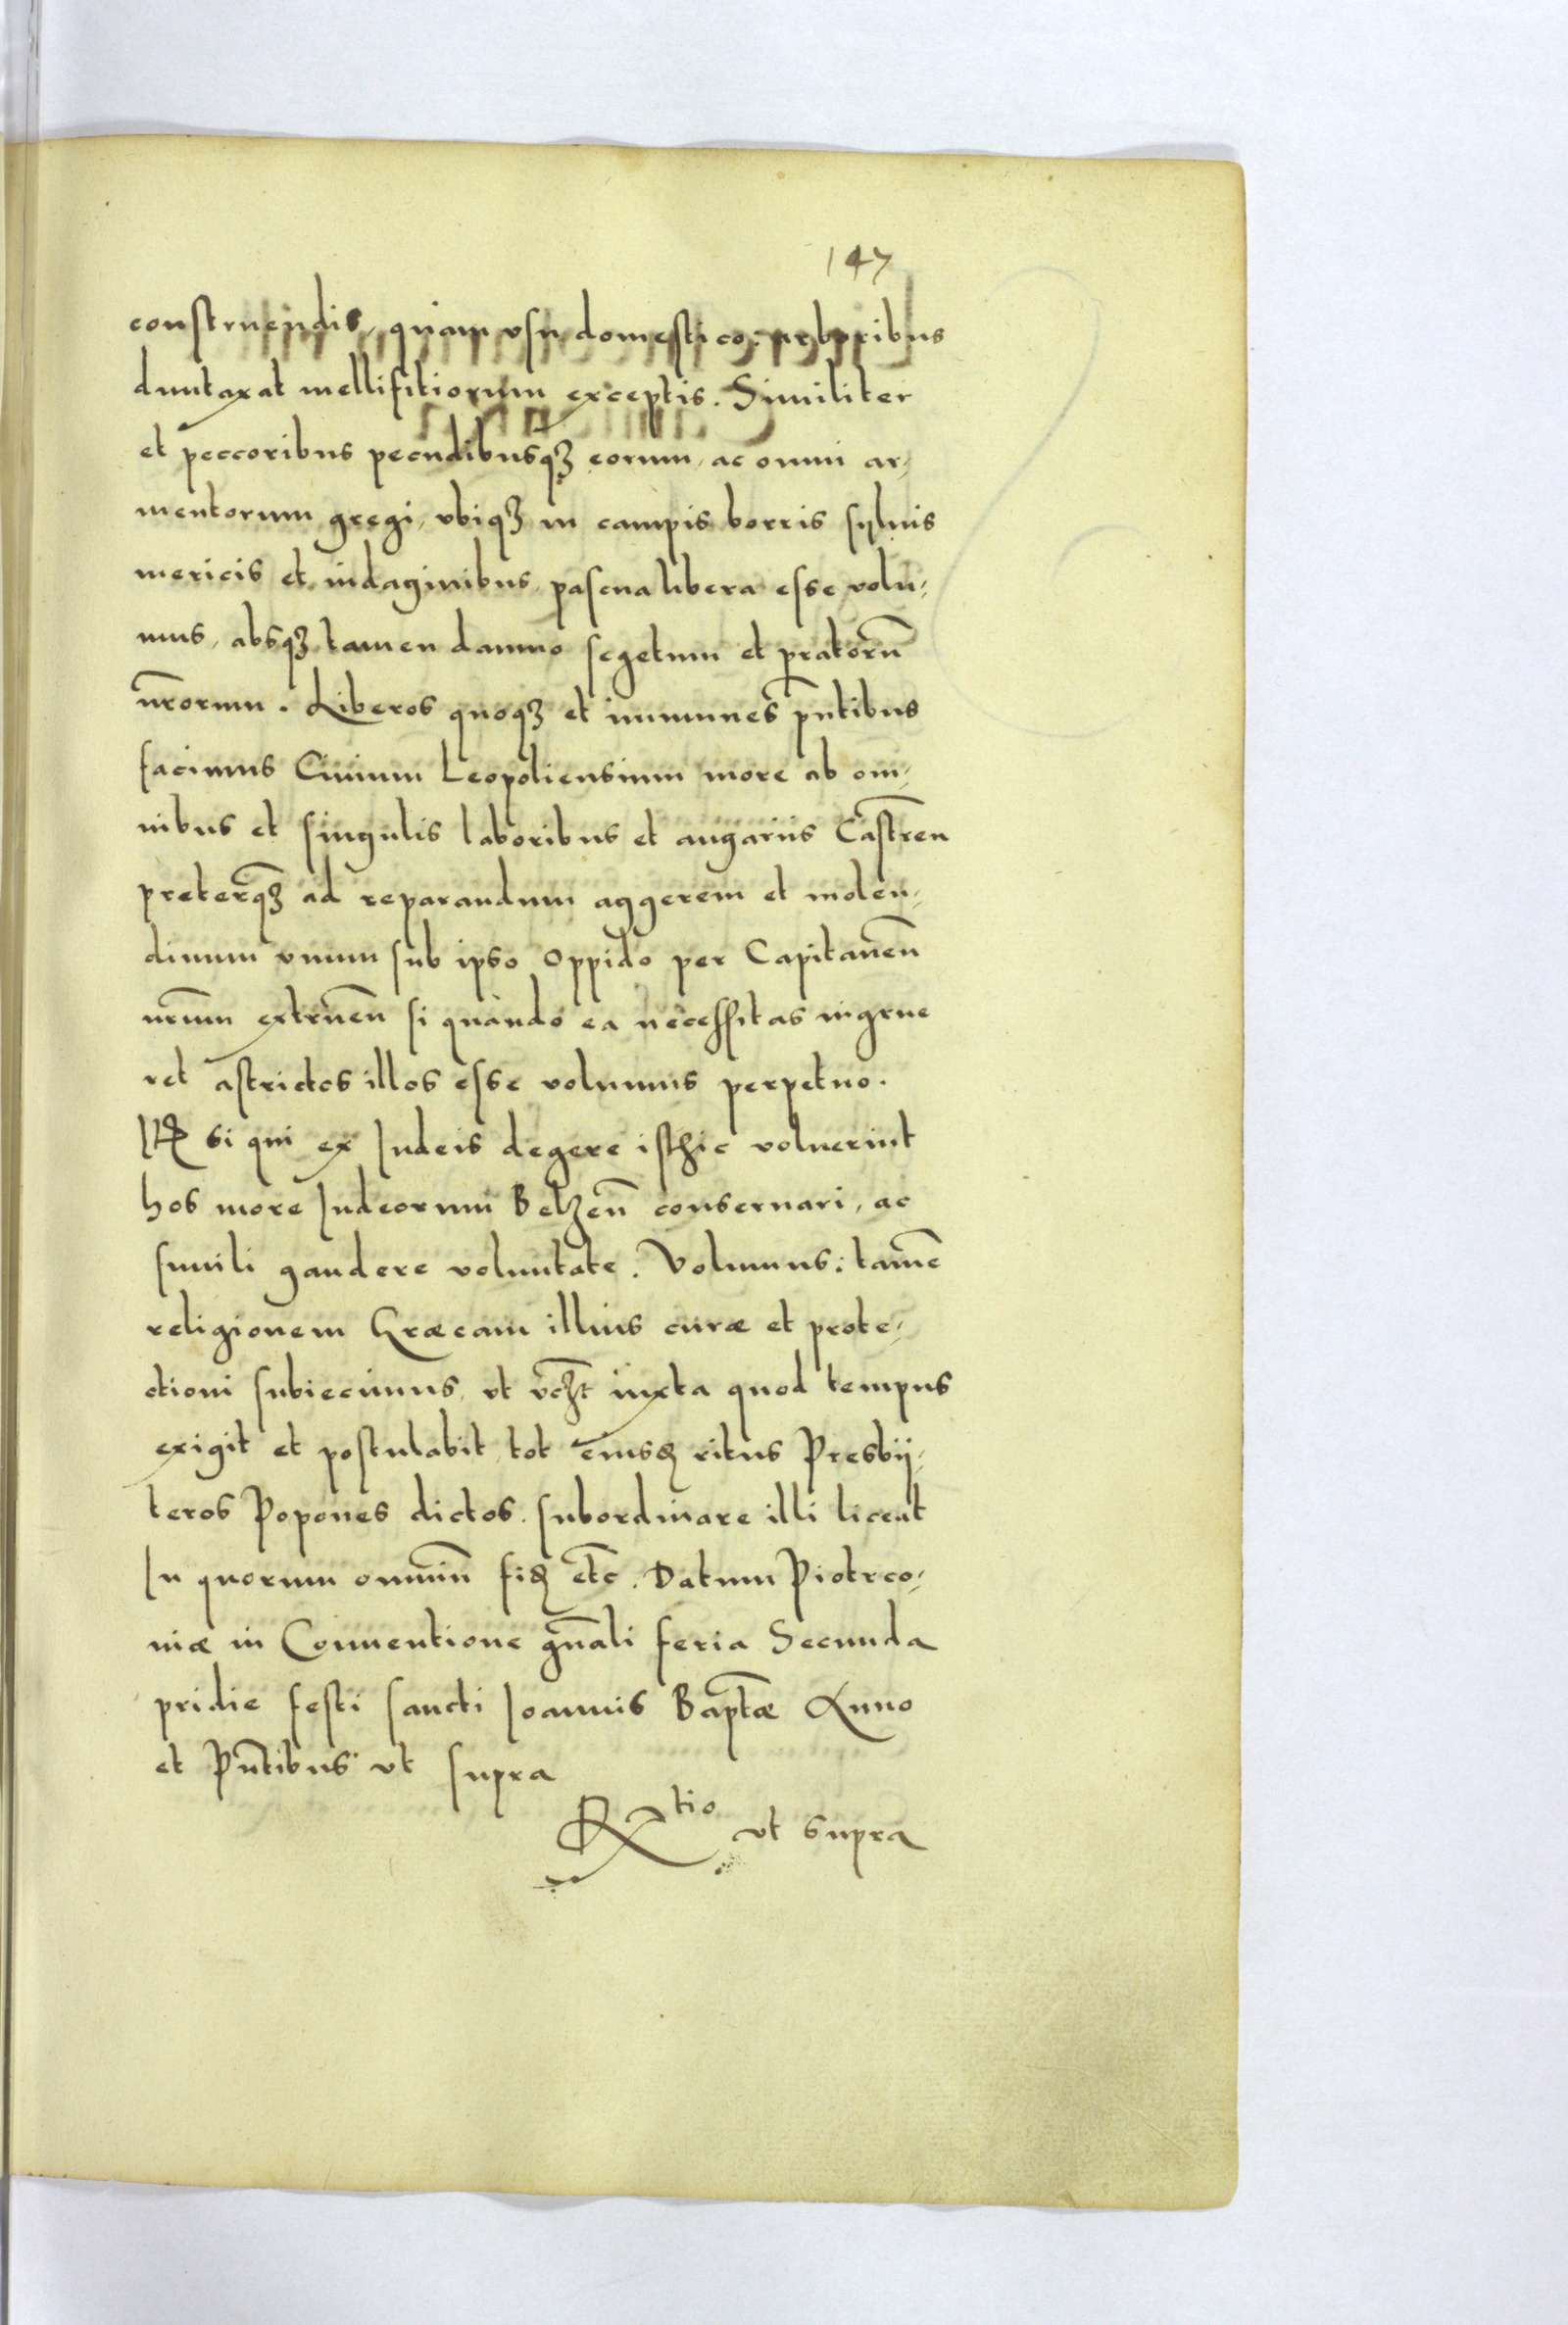 147
construendis, quam vsu domestico: arboribus
duntaxat mellifitiorum exceptis. Similiter
et peccoribus pecudibusqȝ eorum, ac omni ar-
mentorum gregi, vbiqȝ in campis borris syluis
mericis et indaginibus, pascua libera esse volu-
mus, absqȝ tamen damno segetum et pratorū
nr̄orum. Liberos quoqȝ et immunes pn̄tibus
facimus Ciuium Leopoliensium more ab om-
nibus et singulis laboribus et angariis Castren̄
preterqȝ ad reparandum aggerem et molen-
dinum vnum sub ipso Oppido per Capitaneū
nr̄um extruen̄ si quando ea necessitas ingrue
ret astrictos illos esse volumus perpetuo.
Itē si qui ex Iudeis degere isthic voluerint
hos more Iudeorum Belzen̄ conseruari, ac
simili gaudere voluntate. Volumus: tamē
religionem Græcam illius curæ et prote-
ctioni subiecimus, vt vcȝt iuxta quod tempus
exigit et postulabit, tot eiusdē ritus Presbij-
teros Popones dictos. subordinare illi liceat
In quorum omniū fidē etc̄. Datum Piotrco-
niæ in Conuentione gn̄ali feria Secunda
pridie festi sancti Ioannis Baptæ Anno
et Pn̄tibus vt supra
Rtio vt supra